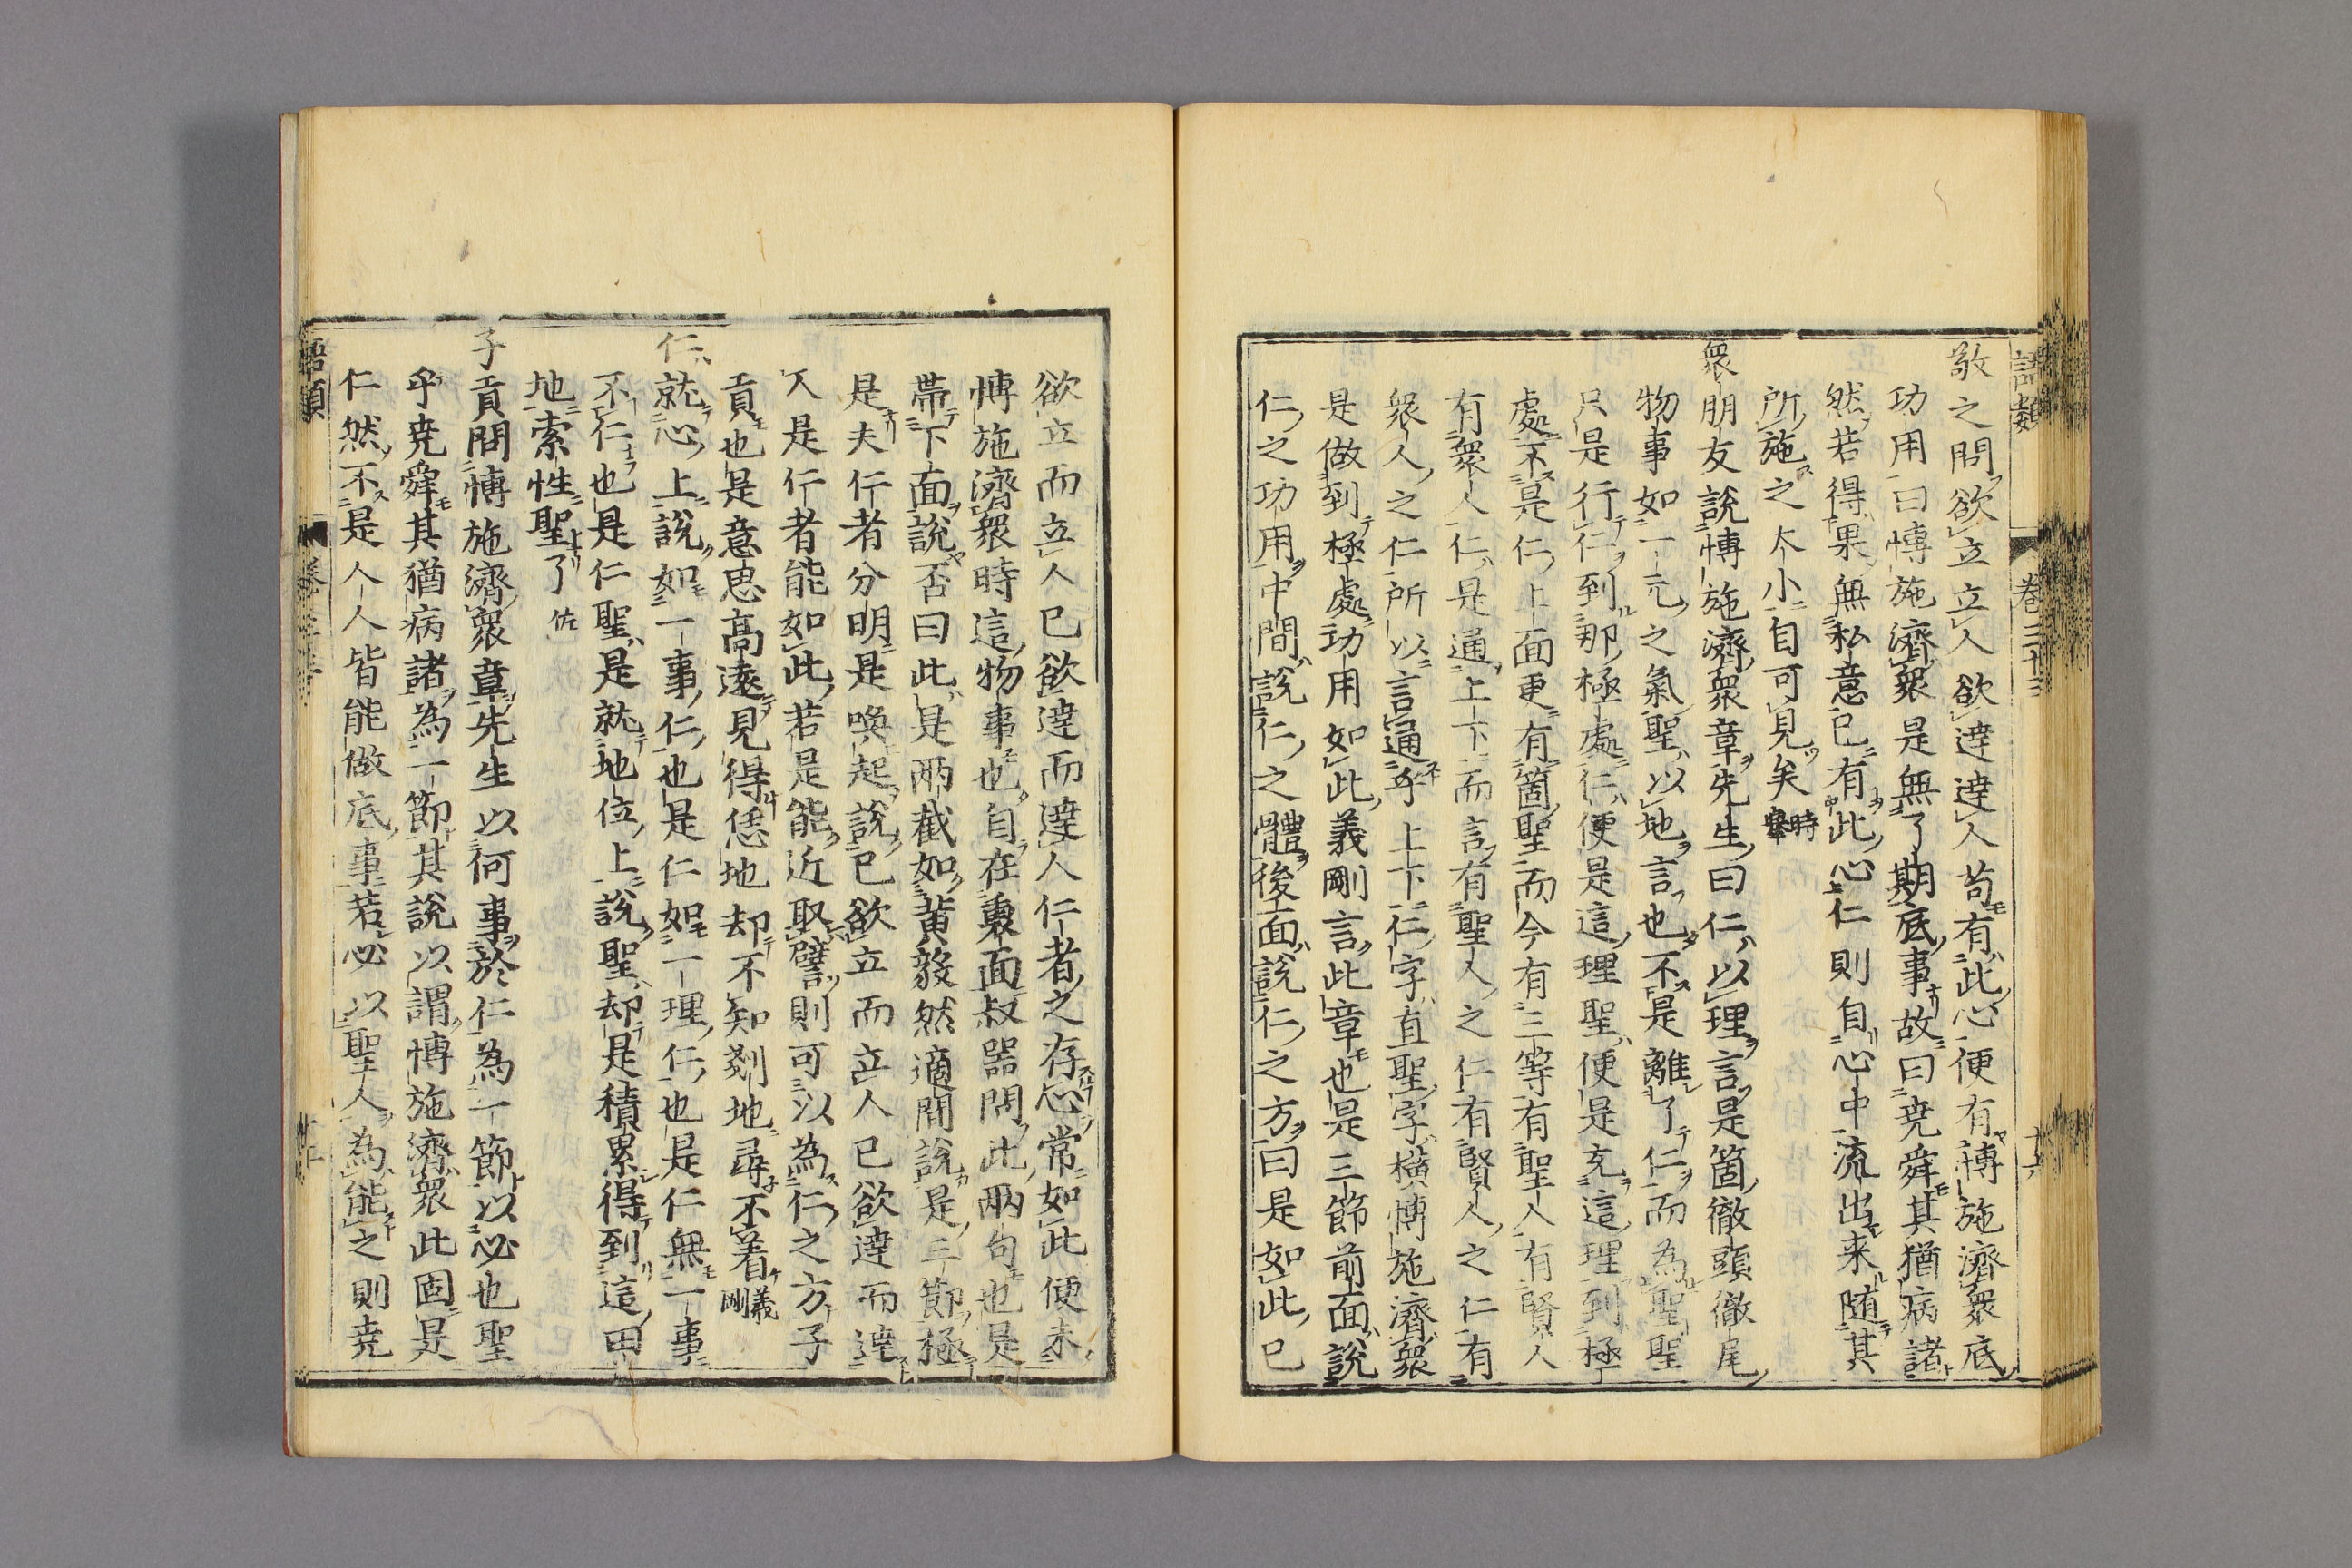 語類 卷三十三 十六
敬之問欲立立人欲達達人苟有此心便有博施濟衆底
功用曰博施濟衆是無了期底事故曰堯舜其猶病諸
然若得果無私意已有此心仁則自心中流出来随其
所施之大小自可見矣時舉
衆朋友說博施濟衆章先生曰仁以理言是箇徹頭徹尾
物事如一元之氣聖以地言也不是離了仁而為聖聖
只是行仁到那極處仁便是這理聖便是充這理到極
處不是仁上面更有箇聖而今有三等有聖人有賢人
有衆人仁是通上下而言有聖人之仁有賢人之仁有
衆人之仁所以言通乎上下仁字直聖字橫博施濟衆
是做到極處功用如此義剛言此章也是三節前面說
仁之功用中間說仁之體後面說仁之方曰是如此已
欲立而立人已欲達而達人仁者之存心常如此便未
博施濟衆時這物事也自在裏面叔器問此兩句也是
帶下面說否曰此是兩截如黃毅然適間說是三節極
是夫仁者分明是喚起說已欲立而立人已欲達而達
人是仁者能如此若是能近取譬則可以為仁之方子
貢也是意思高遠見得恁地却不知剗地尋不着義剛
仁就心上說如一事仁也是仁如一理仁也是仁無一事
不仁也是仁聖是就地位上說聖却是積累得到這田
地索性聖了佐
子貢問博施濟衆章先生以何事於仁為一節以必也聖
乎堯舜其猶病諸為一節其說以謂博施濟衆此固是
仁然不是人人皆能做底事若必以聖人為能之則堯
語類 卷三十三